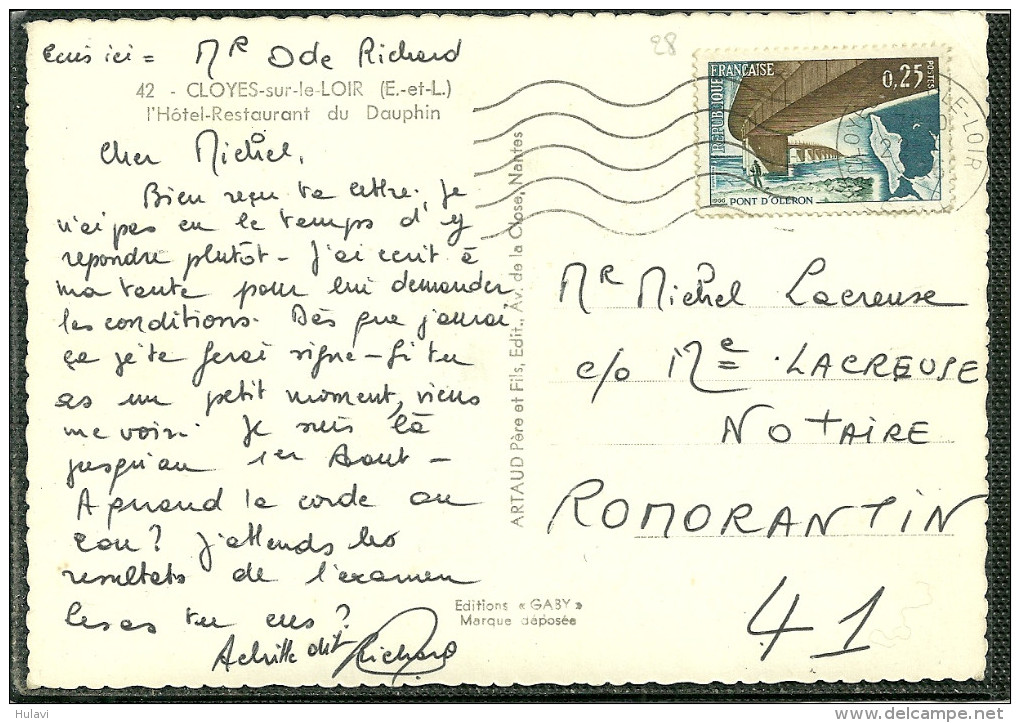 Ecris ici = MR Ode Richard
28
42 - CLOYES-sur-le-LOIR (E.-et-L.)
l'Hôtel-Restaurant du Dauphin
Cher Michel,
Bien reçu ta lettre. Je
n'ai pas eu le temps d'y
repondre plutôt - J'ai ecrit à
ma tante pour lui demander
les conditions. Dès que j'aurai
ça je te ferai signe - Si tu
as un petit moment, viens
me voir. Je suis là
jusqu'au 1er Aout -
A quand la corde au
cou ? J'attends les
resultats de l'examen
les as tu eus ?
Achille dit Richard
ARTAUD Père et Fils, Edit., Av. de la Close, Nantes
Editions « GABY »
Marque déposée
REPUBLIQUE FRANÇAISE
0,25 POSTES
1966 PONT D'OLÉRON
LE-LOIR
MR Michel Lacreuse
c/o Me LACREUSE
NOTAIRE
ROMORANTIN
41
Hulavi
delcampe.net